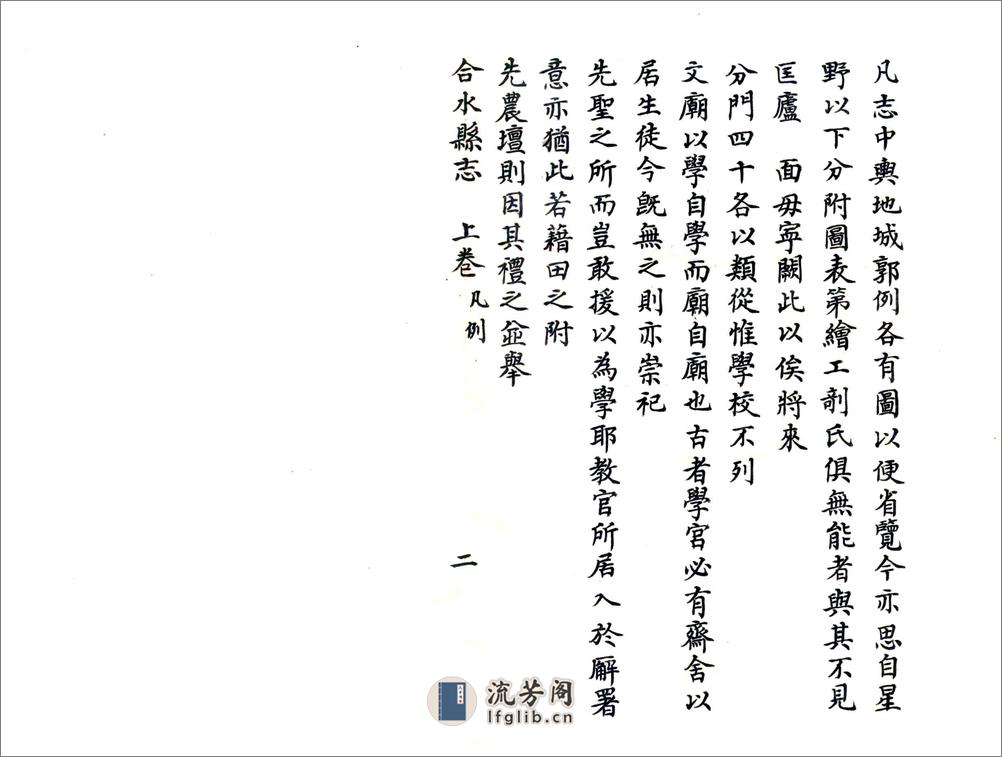 凡志中輿地城郭例各有圖以便省覽今亦思自星
野以下分附圖表第繪工剞氏俱無能者與其不見
匡廬　面毋寧闕此以俟將來
分門四十各以類從惟學校不列
文廟以學自學而廟自廟也古者學宮必有齋舍以
居生徒今既無之則亦崇祀
先聖之所而豈敢援以為學耶教官所居入於廨署
意亦猶此若藉田之附
先農壇則因其禮之並舉
合水縣志　上卷　凡例　二
流芳阁
lfglib.cn